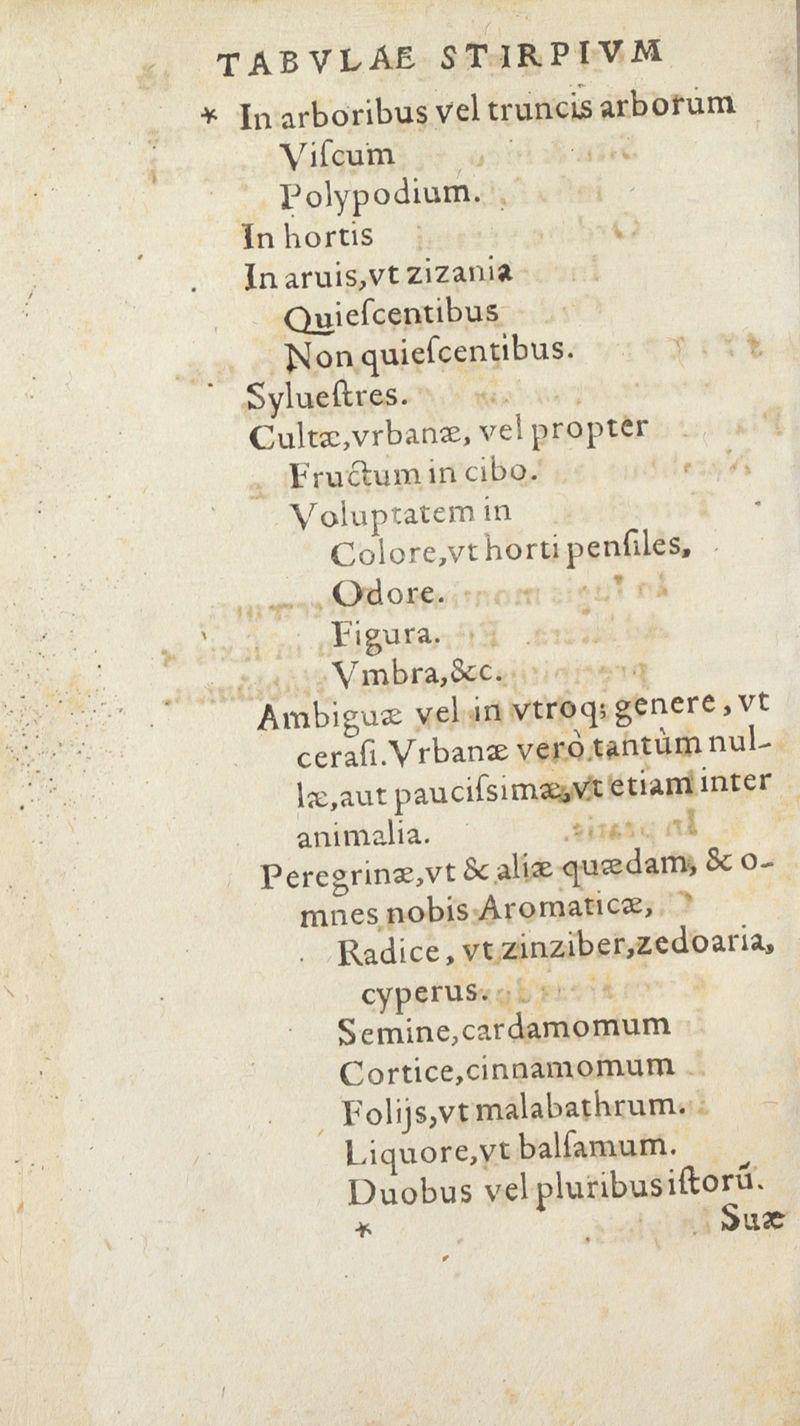 TABVLAE STIRPIVM
* In arboribus vel truncis arborum
Viſcum
Polypodium.
In hortis
In aruis,vt zizania
Quieſcentibus
Non quieſcentibus.
Sylueſtres.
Cultæ,vrbanæ, vel propter
Fructum in cibo.
Voluptatem in
Colore,vt horti penſiles,
Odore.
Figura.
Vmbra,&c.
Ambiguæ vel in vtroq; genere, vt
ceraſi.Vrbanæ verò tantùm nul-
læ,aut pauciſsimæ,vt etiam inter
animalia.
Peregrinæ,vt & aliæ quædam, & o-
mnes nobis Aromaticæ,
Radice, vt zinziber,zedoaria,
cyperus.
Semine,cardamomum
Cortice,cinnamomum
Folijs,vt malabathrum.
Liquore,vt balſamum.
Duobus vel pluribus iſtorũ.
* Suæ